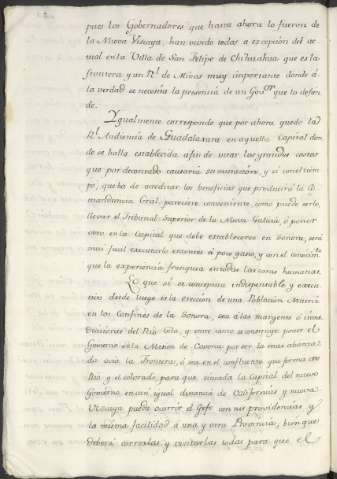 pues los Gobernadores que hasta ahora lo fueron de
la Nueva Vizcaya, han vivido todos a excepción del ac
tual en la Villa de San Felipe de Chihuahua que es la
frontera y un Rl. de Minas muy importante donde á
la verdad se necesita la presencia de un Govor. que lo defien
de.
Ygualmente corresponde que por ahora quede la
Rl. Audiencia de Guadalaxara en aquella Capital don
de se halla establecida afin de evitar los grandes costos
que por decontado causaria su mutación, y si con el tiem
po, que ha de acreditar los beneficios que producirá la Co
mandancia Gral. pareciere conveniente, como puede serlo,
llevar el Tribunal Superior de la Nueva Galicia, ó poner
otro en la Capital que debe establecerse en Sonora, será
mas facil executarlo entonces á poco gasto, y con el conocimto.
que la experiencia franquea en todas las cosas humanas.
Lo que sí se contempla indispensable y exten
sivo desde luego es la ereccion de una Poblacion Mineria
en los Confines de la Sonora, sea á las margenes ó inme
diaciones del Rio Gila, y entre tanto se consigue poner el
Govierno en la Mision de Caborca por ser la mas abanza
da acia la frontera, ó sea en el confluente que forma este
Rio y el colorado, para que situada la Capital del nuevo
Govierno en casi igual distancia de Californias y nueva
Vizcaya pueda ocurrir el Gefe con sus providencias y
la misma facilidad á una y otra Provincia, bien que
deberá correrlas, y visitarlas todas para que el